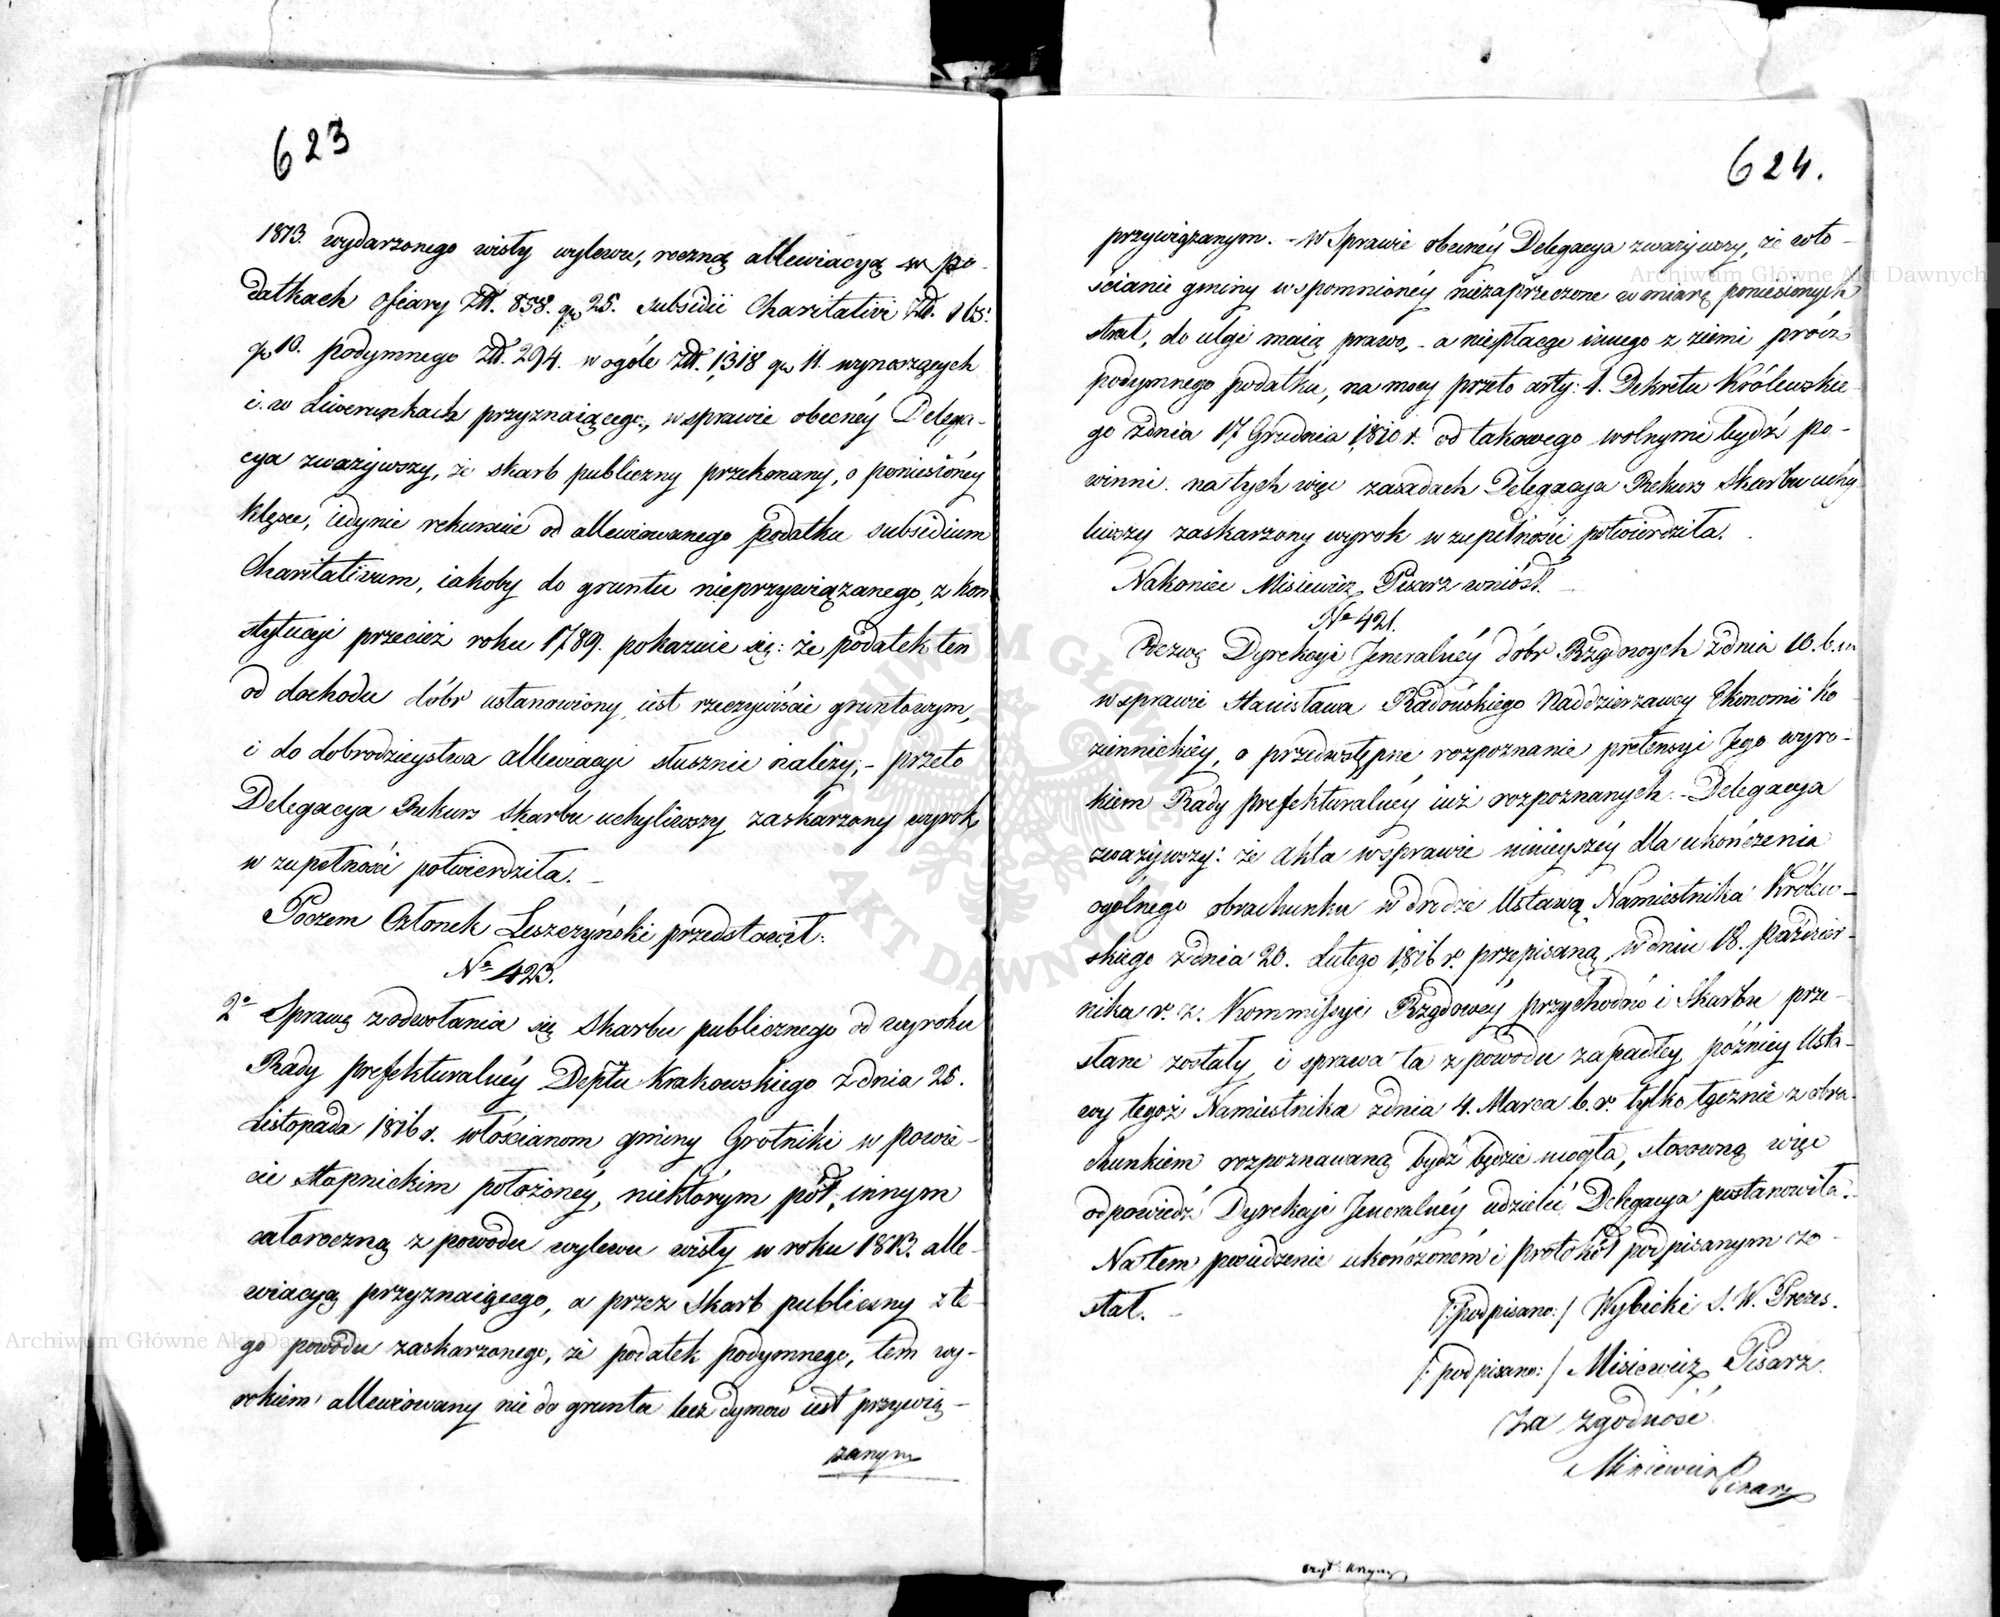 623
1813. wydarzonego wisły wylewu, roczną allewiacyą w po-
datkach ofiary Złł. 858. gr 25. subsidii Charitativi Złł. 165.
gr 10. podymnego Złł. 294. w ogóle Złł. 1318 gr 11. wynoszących
i w Liwerunkach przyznaiącego, w sprawie obecnéy Delega-
cya zważywszy, że skarb publiczny przekonany, o poniesionéy
klęsce, iedynie rekursuie od allewiowanego podatku subsidium
Charitativum, iakoby do gruntu nieprzywiązanego, z kon
stytucyi przecież roku 1789. pokazuie się: że podatek ten
od dochodu dóbr ustanowiony, iest rzeczywiście gruntowym,
i do dobrodzieystwa allewiacyi słusznie należy; - przeto
Delegacya Rekurs skarbu uchyliwszy zaskarżony wyrok
w zupełności potwierdziła. -
Poczem Członek Leszczyński przedstawił:
No 423.
2o Sprawę z odwołania się Skarbu publicznego od wyroku
Rady prefekturalnéy Deptu Krakowskiego z dnia 25.
Listopada 1816 r. włościanom gminy Grotniki w powie-
cie Stopnickim położonéy, niektórym pół, innym
całoroczną z powodu wylewu wisły w roku 1813. alle-
wiacyą przyznaiącego, a przez Skarb publiczny z te-
go powodu zaskarżonego, że podatek podymnego, tem wy-
rokiem allewiowany nie do gruntu lecz dymów iest przywią-
zanym
624.
przywiązanym. - W Sprawie obecnéy Delegacya zważywszy, że wło-
ścianie gminy wspomnionéy niezaprzeczone w miarę poniesionych
strat, do ulgi maią prawo, - a niepłacąc innego z ziemi prócz
podymnego podatku, na mocy przeto arty: 1. Dekretu Królewskie-
go z dnia 17 Grudnia 1810 r. od takowego wolnymi bydź po-
winni. na tych więc zasadach Delegacya Rekurs Skarbu uchy
liwszy zaskarżony wyrok w zupełności potwierdziła.
Nakoniec Misiewicz Pisarz wniósł. -
No 421.
Odezwę Dyrekcyi Jeneralnéy dóbr Rządowych z dnia 10. b. m
w sprawie Stanisława Radońskiego Naddzierżawcy Ekonomii Ko
zienickiéy, o przedwstępne rozpoznanie pretensyi Jego wyro-
kiem Rady prefekturalnéy iuż rozpoznanych. - Delegacya
zważywszy: że akta w sprawie niniéyszéy dla ukończenia
ogólnego obrachunku w drodze Ustawą Namiestnika Królew-
skiego z dnia 20. Lutego 1816 r. przepisaną, w dniu 18. paździer-
nika r. z. Kommissyi Rządowéy przychodów i Skarbu prze-
słane zostały, i sprawa ta z powodu zapadłey późniéy Usta-
wy tegoż Namiestnika z dnia 4. Marca b. r. tylko łącznie z obra-
chunkiem rozpoznawaną bydź będzie mogła, stosowną więc
odpowiedź Dyrekcyi Jeneralnéy udzielić Delegacya postanowiła.
Na tem posiedzenie ukończoném i protokół podpisanym zo-
stał. -
/: podpisano: / Wybicki S. W. Prezes.
/: podpisano: / Misiewicz Pisarz.
Za zgodność
Misiewicz Pisarz
Archiwum Główne Akt Dawnych
Archiwum Główne Akt Dawnych
ARCHIWUM GŁÓWNE AKT DAWNYCH